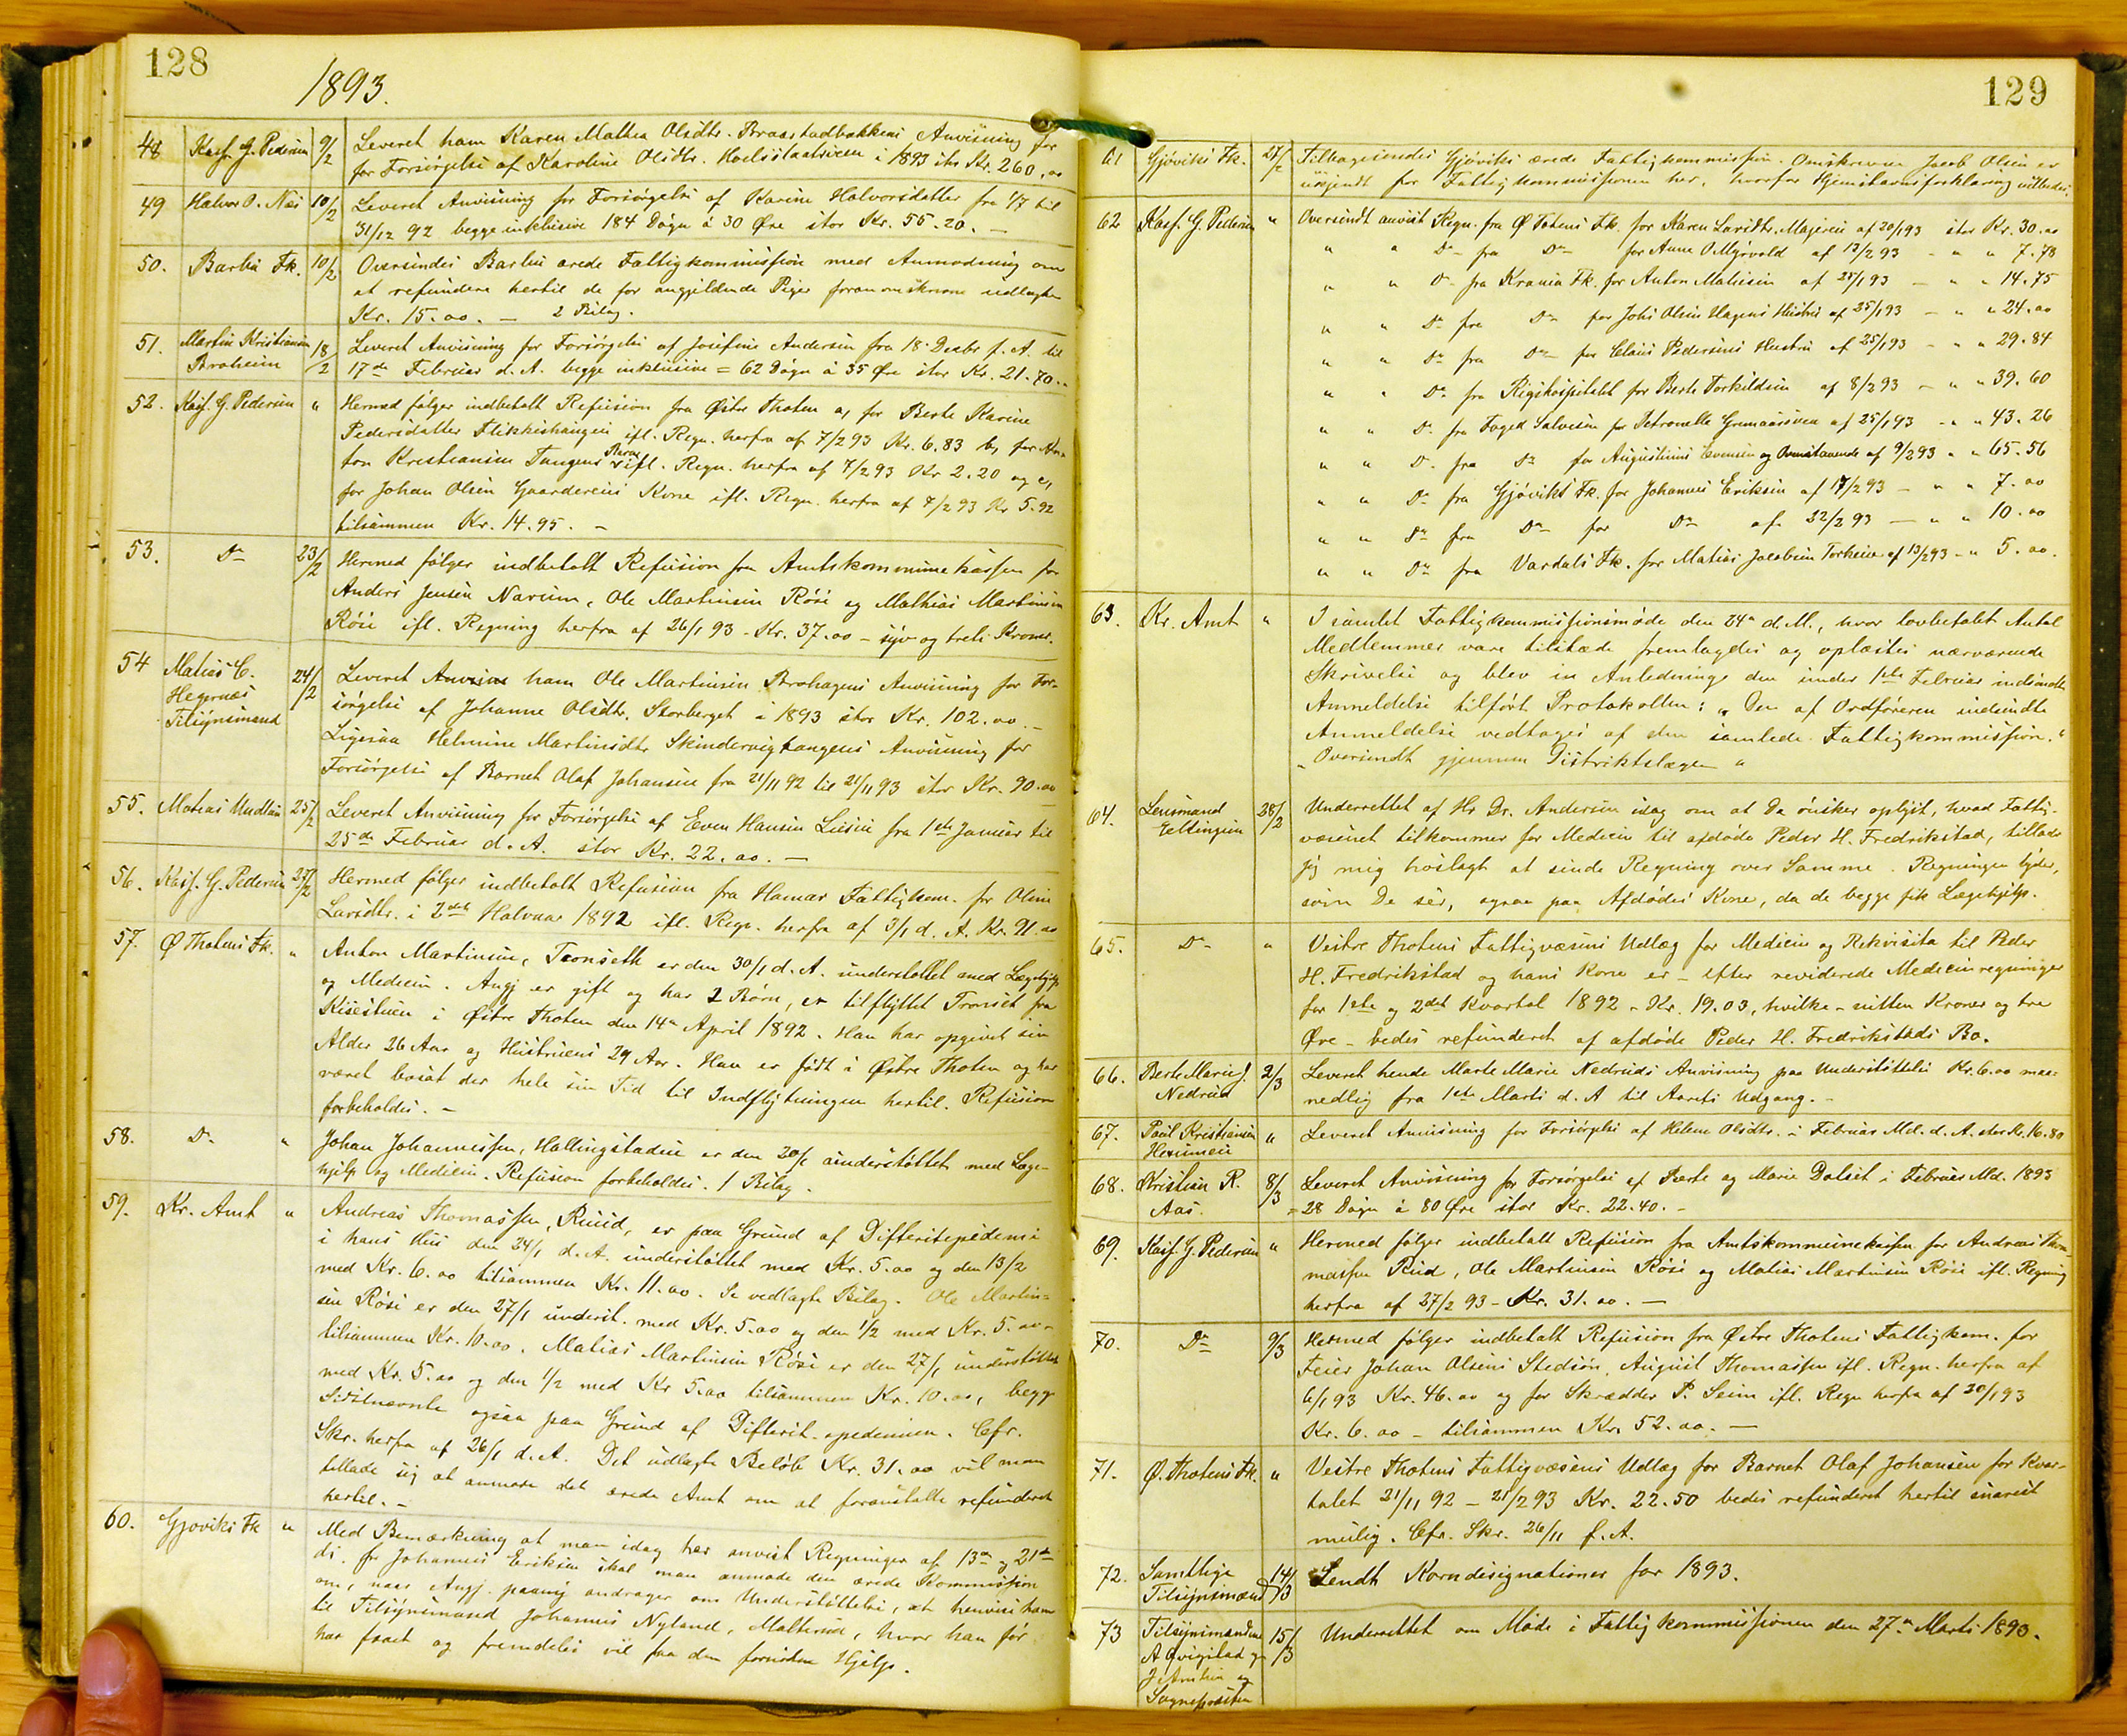 128
1893.
48 Kasf. G. Pedersen 9/2 Leveret ham Karen Mathea Olsdtr. Braastadbakkens Anvisning for
for Forsørgelse af Karoline Olsdtr. i 1893 stor Kr. 260,00
49 Halvor O. Næs 10/2 Leveret Anvisning for Forsørgelse af Karine Halvorsdatter fra 1/7 til
31/12 92 begge inklusive 184 Døgn á 30 Øre stor Kr. 55.20. —
50. Barbu Fk. 10/2 Oversendes Barbu ærede Fattigkommission med Anmodning om
at refundere hertil de for angjeldende Piger foranomskrevne udlagte
Kr. 15.00. — 2 Bilag.
51. Martin Kristiansen Braheim 18/2 Leveret Anvisning for Forsørgelse af Josefine Andersen fra 18. Decbr f. A. til
17de Februar d. A. begge inklusive = 62 Døgn á 35 Øre stor Kr. 21.70..
52. Kasf. G. Pedersen " Hermed følger indbetalt Refusion fra Østre Thoten a, for Berte Karine
Pedersdatter ifl. Regn. herfra af 7/2 93 Kr. 6.83 b, for An-
ton Kristiansen Tangens Barn ifl. Regn. herfra af 7/2 93 Kr 2.20 og c,
for Johan Olsen Gaardereies Kone ifl. Regn. herfra af 7/2 93 Kr 5.92
tilsammen Kr. 14.95. –
53. Do 23/2 Hermed følger indbetalt Refusion fra Amtskommunekassen for
Anders Jensen Narum, Ole Martinsen Røse og Mathias Martinsen
Røse ifl. Regning herfra af 26/1 93 – Kr. 37.00 – syv og treti Kroner.
54 Matias C. Hegernæs Tilsynsmand 24/2 Leveret ham Ole Martinsen Brohagens Anvisning for For-
sørgelse af Johanne Olsdtr. Storberget i 1893 stor Kr. 102.00. –
Ligesaa Helmine Martinsdtr Skindervigtangens Anvisning for
Forsørgelse af Barnet Olaf Johansen fra 21/11 92 til 21/11 93 stor Kr. 90.00
55. Matias Undlien 25/2 Leveret Anvisning for Forsørgelse af Even Hansen Lusen fra 1ste Januar til
25de Februar d. A. stor Kr. 22.00. —
56. Kasf. G. Pedersen 27/2 Hermed følger indbetalt Refusion fra Hamar Fattigkom. for Oline
Larsdtr. i 2det Halvaar 1892 ifl. Regn. herfra af 3/1 d. A. Kr. 91.00
57. Ø Thotens Fk. " Anton Martinsen, Tronseth er den 30/1 d. A. understøttet med Lægehjelp
og Medicin. Angj er gift og har 2 Børn, er tilflyttet Tronset fra
Kisestuen i Østre Thoten den 14e April 1892. Han har opgivet sin
Alder 26 Aar og Hustruens 29 Aar. Han er født i Østre Thoten og har
været bosat der hele sin Tid til Indflytningen hertil. Refusion
forbeholdes. –
58. Do " Johan Johannessen, Hallingstadeie er den 20/1 understøttet med Læge-
hjelp og Medicin. Refusion forbeholdes. 1 Bilag.
59. Kr. Amt " Andreas Thomassen, Ruud, er paa Grund af Difteritepidemi
i hans Hus den 24/1 d. A. understøttet med Kr. 5.00 og den 13/2
med Kr. 6.00 tilsammen Kr. 11.00. Se vedlagte Bilag. Ole Martin-
sen Røse er den 27/1 underst. med Kr. 5.00 og den 1/2 med Kr. 5.00 –
tilsammen Kr. 10.00. Matias Martinsen Røse er den 27/1 understøttet
med Kr. 5.00 og den 1/2 med Kr 5.00 tilsammen Kr. 10.00, begge
Sidstnævnte ogsaa paa Grund af Difterit.epedemien. Cfr.
Skr. herfra af 26/1 d. A. Det udlagte Beløb Kr. 31.00 vil man
tillade sig at anmode det ærede Amt om at foranstalte refunderet
hertil. –
60. Gjøviks Fk " Med Bemærkning at man idag har anvist Regninger af 13de og 21de
ds. for Johannes Eriksen skal man anmode den ærede Kommission
om, naar Angj. paany andrager om Understøttelse, at henvise ham
til Tilsynsmand Johannes Nyland, hvor han før
har faaet og fremdeles vil faa den fornødne Hjelp.
129
61 Gjøviks Fk. 27/2 Tilbagesendes Gjøviks ærede Fattigkommission. Omskrevne Jacob Olsen er
ukjendt for Fattigkommissionen her, hvorfor Hjemstavnsforklaring udbedes.
62 Kasf. G. Pedersen " Oversendt anvist Regn. fra Ø Totens Fk. for Karen Larsdtr. Majereie af 20/1 93 stor Kr. 30.00
" " Do fra Do for Anne O Myrvold af 13/2 93 – " " 7.78
" " Do fra Krania Fk. for Anton Mathisen af 25/1 93 – " " 14.75
" " Do fra Do for Johs Olsen Hagens Hustru af 25/1 93 – " " 24.00
" " Do fra Do for Claus Pedersens Hustru af 25/1 93 – " " 29.84
" " Do fra Rigshospitalet for Berte Torkildsen af 8/2 93 – " " 39.60
" " Do fra Foged Salvesen for Petronelle Gunnarsveen af 25/1 93 – " " 43.26
" " Do fra Do for Augustinus Evensen og Ovenstaaende af 9/2 93 " " 65.56
" " Do fra Gjøviks Fk. for Johannes Eriksen af 17/2 93 – " " 7.00
" " Do fra Do for Do af 22/2 93 – " " 10.00
" " Do fra Vardals Fk. for Matias Jacobsen af 13/2 93 – " 5.00.
63. Kr. Amt " I samlet Fattigkommissionsmøde den 24e d. M., hvor lovbefalet Antal
Medlemmer vare tilstæde fremlagdes og oplæstes nærværende
Skrivelse og blev in Anledning den under 1ste Februar indsendte
Anmeldelse tilført Protokollen: „Den af Ordføreren indsendte
Anmeldelse vedtages af den samlede Fattigkommission."
„Oversendt gjennem Distriktslægen"
64. Lensmand Ellingsen 28/2 Underrettet af Hr Dr. Andersen idag om at De ønsker oplyst, hvad Fattig-
væsenet tilkommer for Medicin til afdøde Peder H. Fredrikstad, tillader
jeg mig hoslagt at sende Regning over Samme. Regningen lyder,
som De ser, ogsaa paa Afdødes Kone, da de begge fik Lægehjelp.
65. Do " Vestre Thotens Fattigvæsens Udlæg for Medicin og Rekvisita til Peder
H. Fredrikstad og hans Kone er – efter reviderede Medicinregninger
for 1ste og 2det Kvartal 1892 – Kr. 19.03, hvilke – nitten Kroner og tre
Øre – bedes refunderet af afdøde Peder H. Fredrikstads Bo.
66. Berte Marie J. Nedrud 2/3 Leveret hende Marte Marie Nedruds Anvisning paa Understøttelse Kr. 6.00 maa-
nedlig fra 1ste Marts d. A til Aarets Udgang. –
67. Paul Kristiansen " Leveret Anvisning for Forsørgelse af Helene Olsdtr. i Februar Md. d. A. stor Kr. 16.80
68. Kristian R. Aas. 8/3 Leveret Anvisning for Forsørgelse af Berte og Marie Dalset i Februar Md. 1893
= 28 Døgn á 80 Øre stor Kr. 22.40. –
69. Kasf. G. Pedersen " Hermed følger indbetalt Refusion fra Amtskommunekassen for Andreas Thom-
massen Rud, Ole Martinsen Røse og Matias Martinsen Røse ifl. Regning
herfra af 27/2 93 – Kr. 31.00. —
70. Do 9/3 Hermed følger indbetalt Refusion fra Østre Thotens Fattigkom. for
Feier Johan Olsens Stedsøn, August Thomassen ifl. Regn. herfra af
6/1 93 Kr. 46.00 og for Skrædder P. Seim ifl. Regn herfra af 20/1 93
Kr. 6.00 – tilsammen Kr. 52.00. —
71. Ø. Thotens Fk. " Vestre Thotens Fattigvæsens Udlæg for Barnet Olaf Johansen for Kvar-
talet 21/11 92 – 21/2 93 Kr. 22.50 bedes refunderet hertil snarest
mulig. Cfr. Skr. 26/11 f. A.
72. Samtlige Tilsynsmænd 14/3 Sendt Korndesignationer for 1893.
73 Tilsynsmændene A Qvigstad og 15/3 Underrettet om Møde i Fattigkommissionen den 27e Marts 1893.
Sognepresten